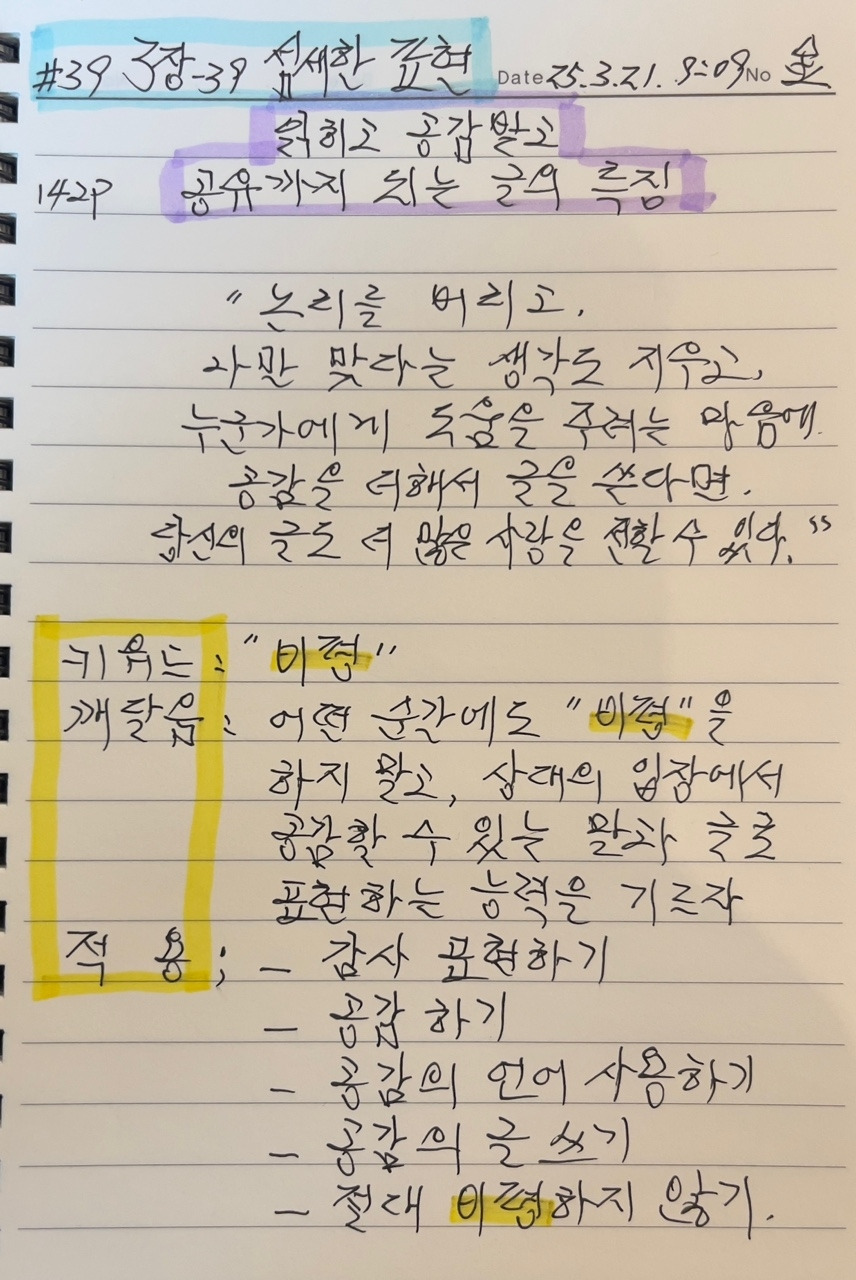 #39 3장-39 섬세한 표현 Date 25.3.21. 9:09 No 金
읽히고 공감받고
142P 공유까지 되는 글의 특징
"논리를 버리고,
나만 맞다는 생각도 지우고,
누군가에게 도움을 주려는 마음에
공감을 더해서 글을 쓴다면,
당신의 글도 더 많은 사람을 전할 수 있다."
키워드 : "비평"
깨달음 : 어떤 순간에도 "비평"을
하지 말고, 상대의 입장에서
공감할 수 있는 말과 글로
표현하는 능력을 기르자
적 용 ; - 감사 표현하기
- 공감 하기
- 공감의 언어 사용하기
- 공감의 글 쓰기
- 절대 비평하지 않기.